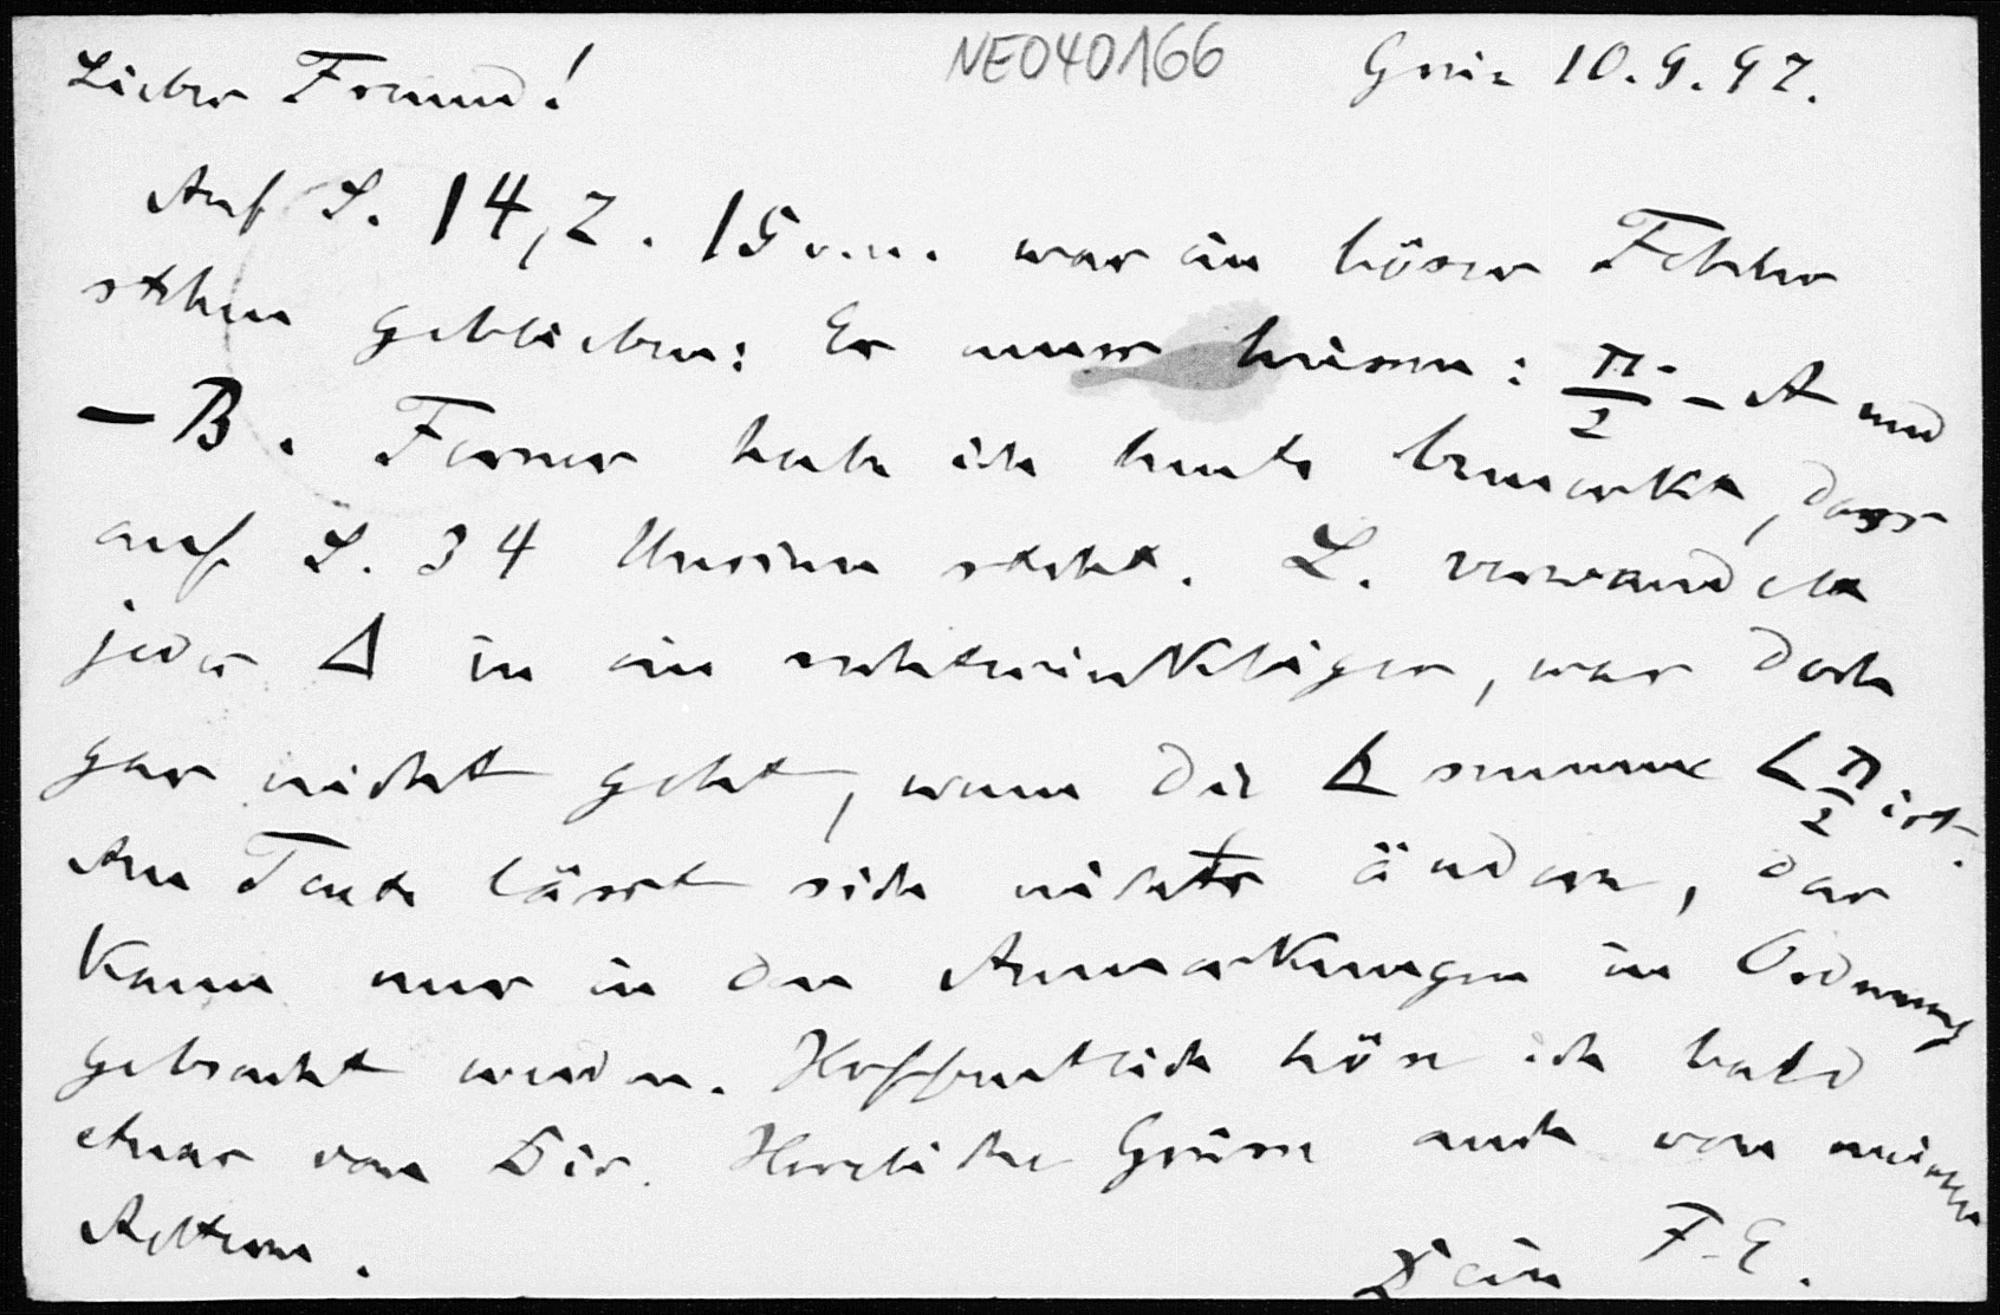 NE040166
Lieber Freund! Greiz 10.9.97.
Auf S. 14, Z. 15 v.u. war ein böser Fehler
stehen geblieben: Es muss heissen: π/2 - A und
- B. Ferner habe ich heute bemerkt, dass
auf S. 34 Unsinn steht. L. verwandelt
jedes Δ in ein rechtwinkliges, was doch
gar nicht geht, wenn die Δ summe < π/2 ist.
Am Texte lässt sich nichts ändern, das
kann nur in den Anmerkungen in Ordnung
gebracht werden. Hoffentlich höre ich bald
etwas von Dir. Herzliche Grüsse auch von meinen
Aeltern.
Dein F. E.